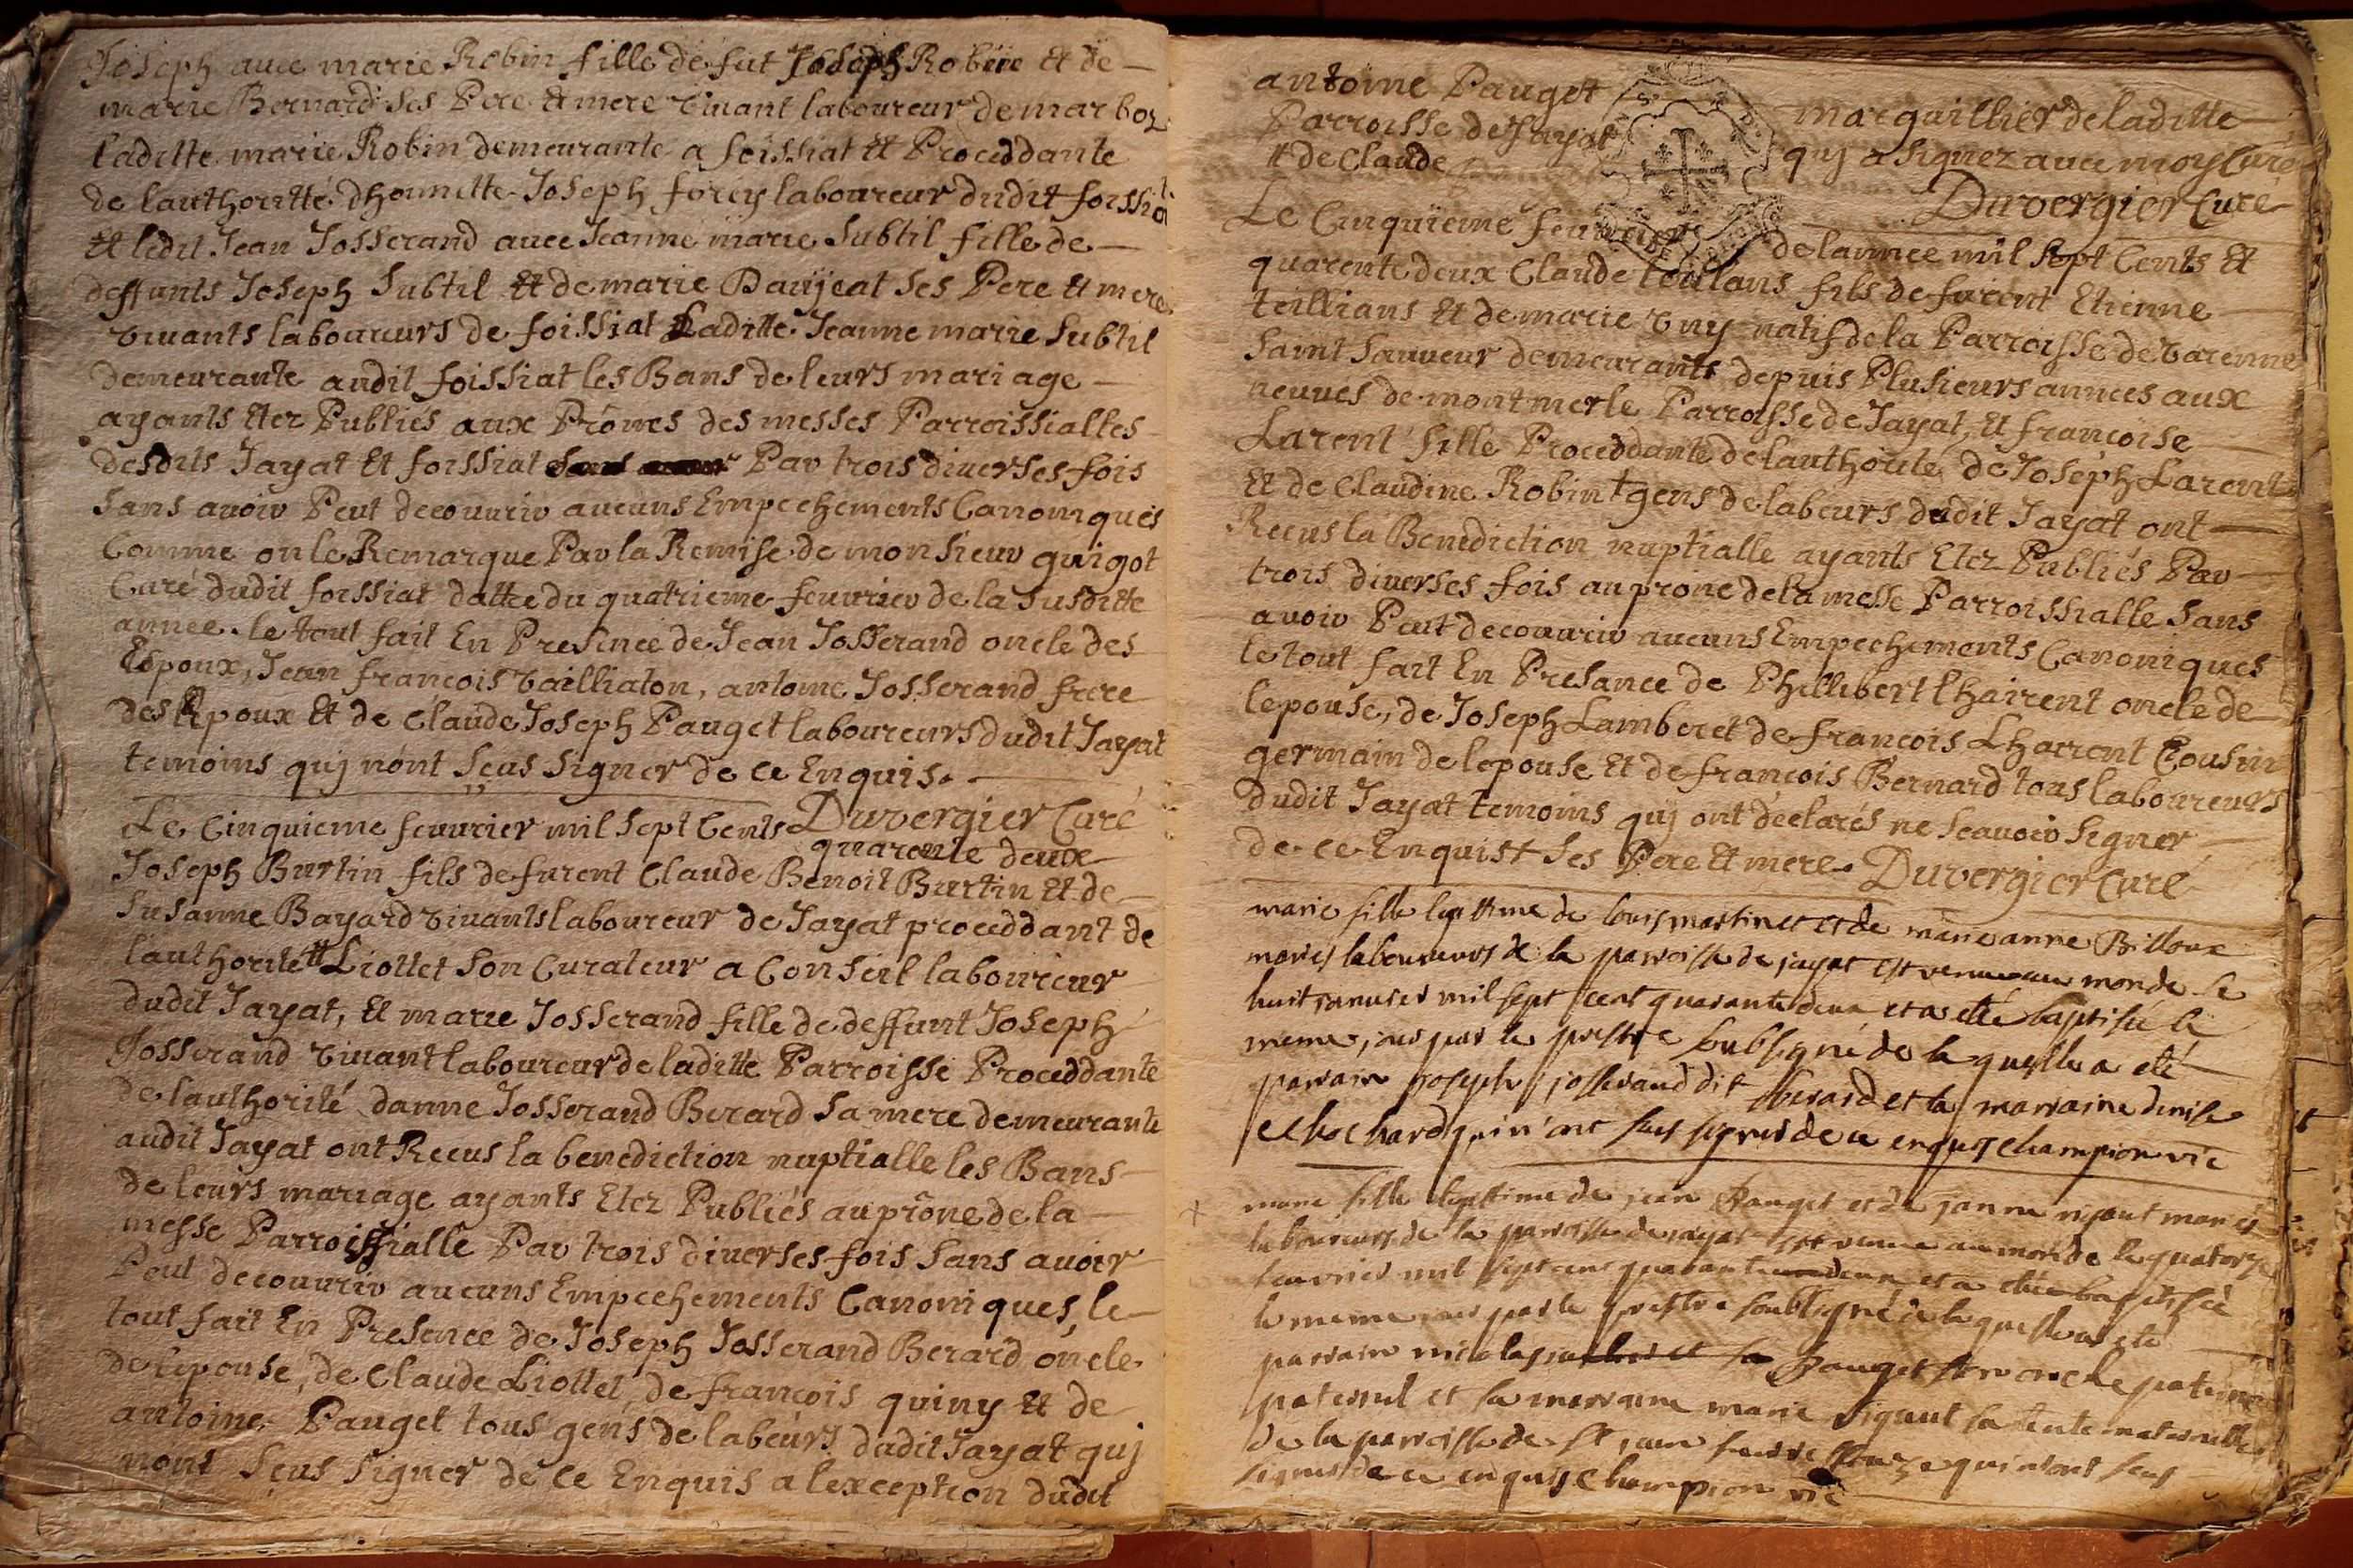 Joseph avec marie Robin fille de fut Joseph Robin et de
marie Bernard ses Pere et mere vivant laboureur de marboz
laditte marie Robin demeurante a foissiat et Proceddante
de lauthoritté dhonnette Joseph forey laboureur dudit foissiat
Et ledit Jean Josserand avec Jeanne marie Subtil fille de
deffunts Joseph Subtil et de marie Daujeat ses Pere et mere
vivants laboureurs de foissiat Laditte Jeanne marie Subtil
demeurante audit foissiat les Bans de leurs mariage
ayants Etez Publiés aux Prônes des messes Parroissialles
desdits Jayat Et foissiat Par trois diverses fois
Sans avoir Peut decouvrir aucuns Empechements Canoniques
Comme on le Remarque Par la Remise de monsieur guigot
Curé dudit foissiat dattee du quatrieme feuvrier de la susditte
annee. le tout fait En Presence de Jean Josserand oncle des
Epoux, Jean francois vailliaton, antoine Josserand frere
des Epoux Et de Claude Joseph Pauget laboureurs dudit Jayat
temoins quj nont Sçus signer de ce Enquis.
Duvergier Curé
Le Cinquieme feuvrier mil sept Cents quarente deux
Joseph Burtin fils de furent Claude Benoit Burtin et de
Susanne Bayard vivants laboureur de Jayat proceddant de
lauthorité # Liottet son Curateur a Conseil laboureur
dudit Jayat, Et marie Josserand fille de deffunt Joseph
Josserand vivant laboureur de laditte Parroisse Proceddante
de lauthorité danne Josserand Berard sa mere demeurante
audit Jayat ont Recus la benediction nuptialle les Bans
de leurs mariage ayants Etez Publiés au prône de la
messe Parroissialle Par trois diverses fois sans avoir
Peut decouvrir aucuns Empechements Canoniques, le
tout fait En Presence de Joseph Josserand Berard oncle
de lepouse, de Claude Liottet, de francois quiny et de
antoine Pauget tous gens de labeurs dudit Jayat quj
nont Sçus signer de ce Enquis a lexception dudit
antoine Pauget marguillier de laditte
Parroisse de Jayat quj a signez avec moy Curé
# de Claude
Duvergier Curé
Le Cinquieme feuvrier de lannee mil sept Cents Et
quarente deux Claude fils de furent Etienne
teillians Et de marie vny natif de la Parroisse de varenne
saint sauveur demeurants depuis Plusieurs annees aux
neuves de montmerle Parroisse de Jayat, Et francoise
Larent fille Proceddante de lauthorité de Joseph Larent
Et de Claudine Robin + gens de labeurs dudit Jayat ont
Recus la Benediction nuptialle ayants Etez Publiés Par
trois diverses fois au prone de la messe Parroissialle sans
avoir Peut decouvrir aucuns Empechements Canoniques
le tout fait En Presance de Phillibert Lhairent oncle de
lepouse, de Joseph Lamberet de francois Lharrent Cousin
germain de lepouse Et de francois Bernard tous laboureurs
dudit Jayat temoins quj ont déclarés ne scavoir signer
de ce Enquis + ses Pere Et mere. Duvergier Curé
marie fille legittime de louis martinet et de marie anne Billoux
mariés laboureurs de la parroisse de jayat est venue au monde le
huit janvier mil sept cent quarante deux et a etté baptisée le
meme jour par le prestre soubsigné de la quelle a eté
parrain joseph josserand dit berard et la marraine denise
echochard qui n'ont sus signer de ce enquis Champion vic
marie fille legittime de jean Pauget et de janne mariés
laboureurs de la parroisse de jayat est venue au monde le quatorze
feuvrier mil sept cent quarante deux et a etée baptisée
le meme jour par le prestre soubsigné de la quelle a eté
parrain nicolas Pauget son oncle paternel
paternel et la marraine marie sa tente maternelle
de la parroisse de st jean qui n'ont sus
signer de ce enquis Champion vic